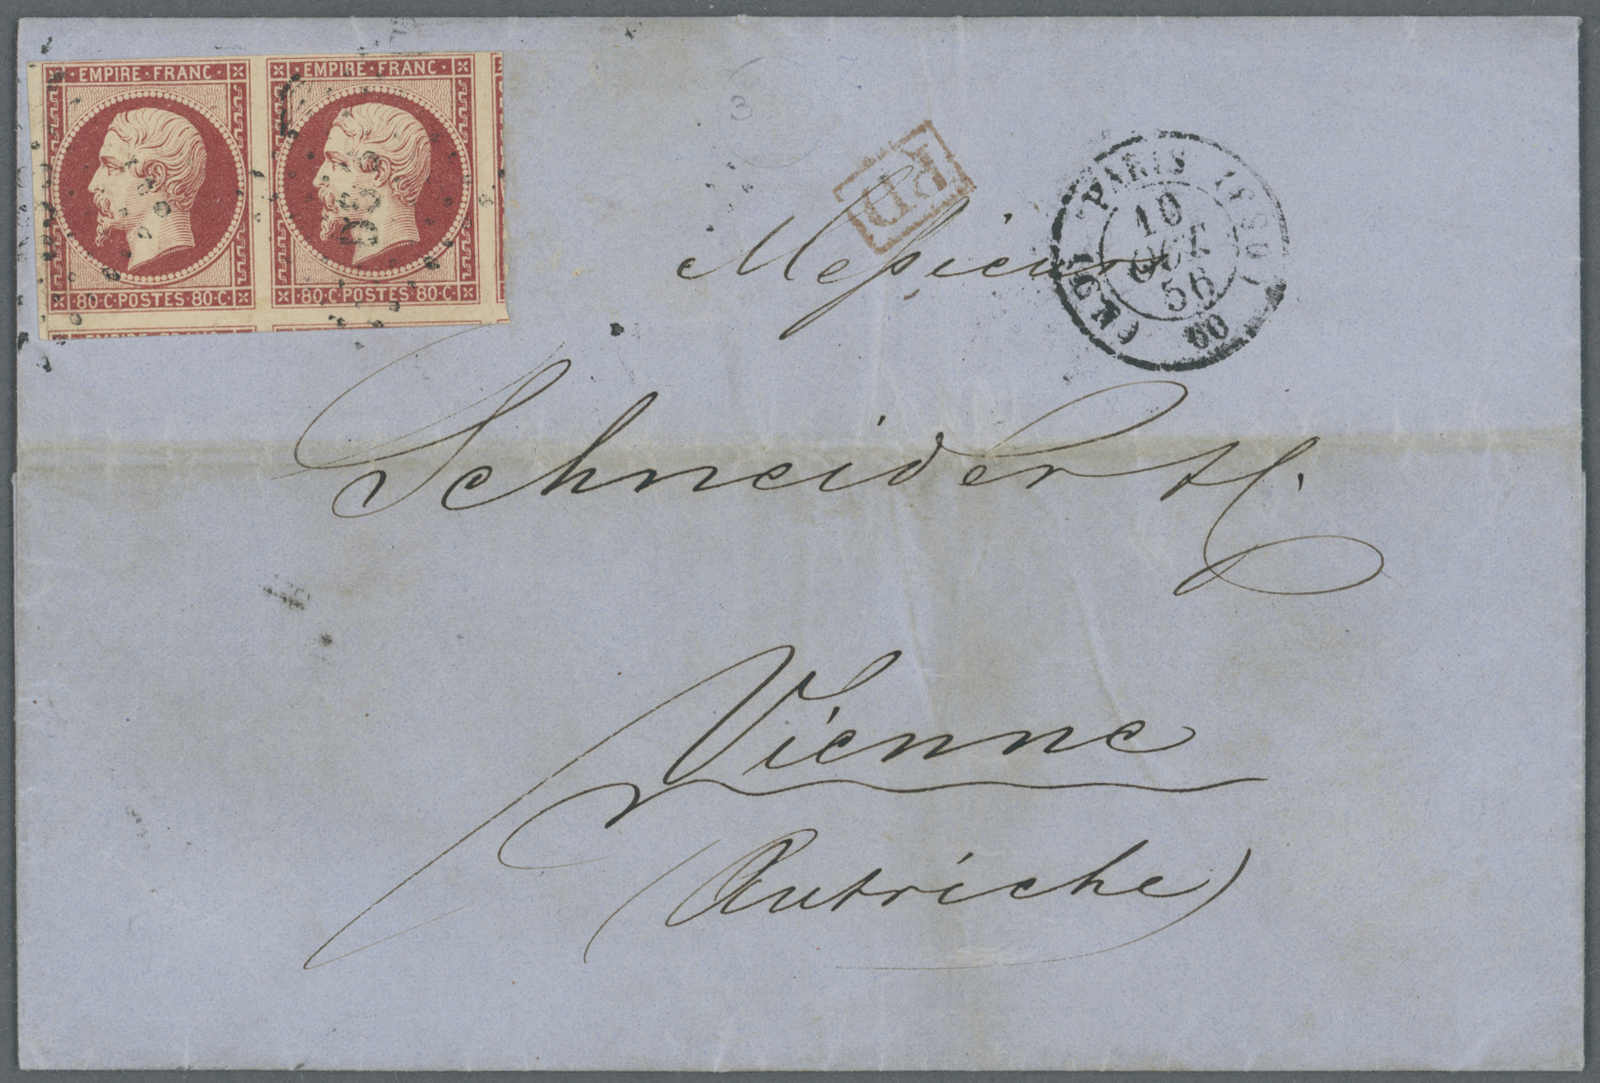 EMPIRE·FRANC· EMPIRE·FRANC·
80·C·POSTES·80·C· 80·C·POSTES·80·C·
DS3
3
P.D.
PARIS (60)
10
OCT
56
(60)
Messieurs
Schneider &C.
Vienne
(Autriche)